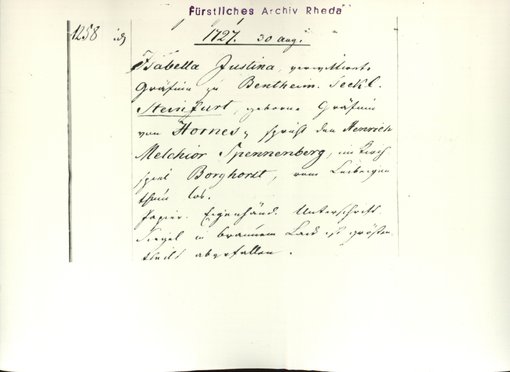 Fürstliches Archiv Rheda
1258
1727. 30 aug.
Isabella Justina, verwittwete
Gräfinn zu Bentheim. Teckl.
Steinfurt, geborne Gräfinn
von Hornes, spricht den Henrich
Melchior Spennenberg, im Kirch
spiel Borghorst, vom Leibeigen
thum los.
Papier. Eigenhänd. Unterschrift.
Siegel in braunem Lack ist größten
theils abgefallen.